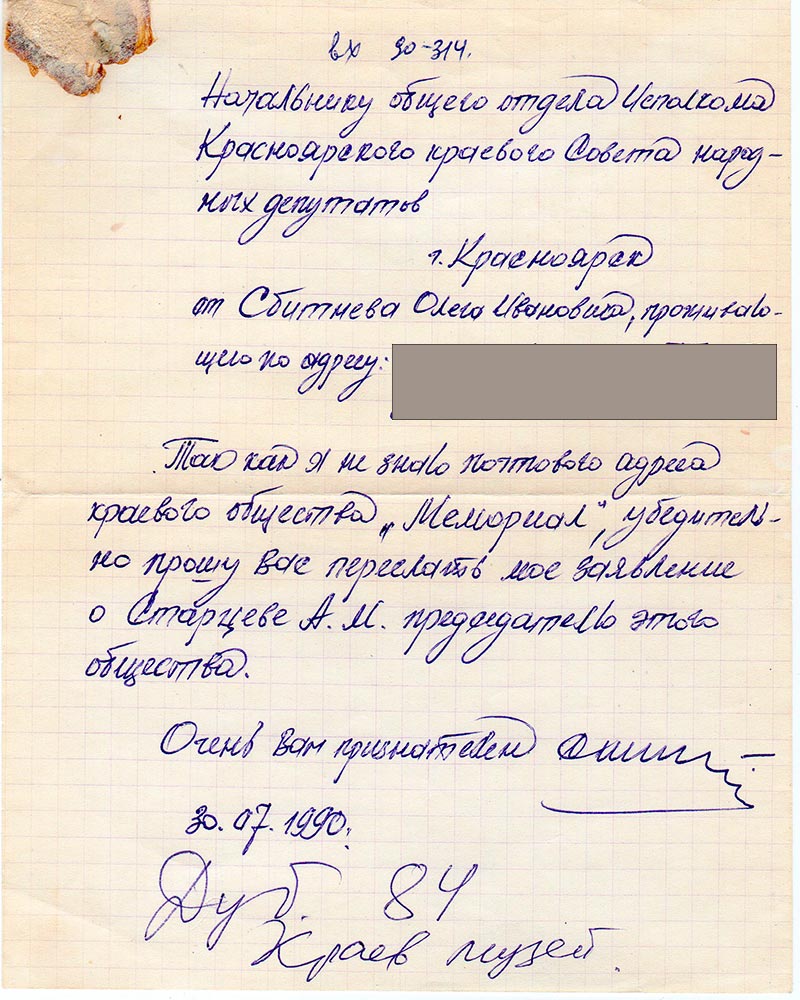 вх 90-314.
Начальнику общего отдела Исполкома
Красноярского краевого Совета народ-
ных депутатов
г. Красноярск
от Сбитнева Олега Ивановича, проживаю-
щего по адресу:
Так как я не знаю почтового адреса
краевого общества „Мемориал“, убедитель-
но прошу Вас переслать мое заявление
о Старцеве А. М. председателю этого
общества.
Очень Вам признателен
30.07.1990.
Дуб. 84
Краев музей.